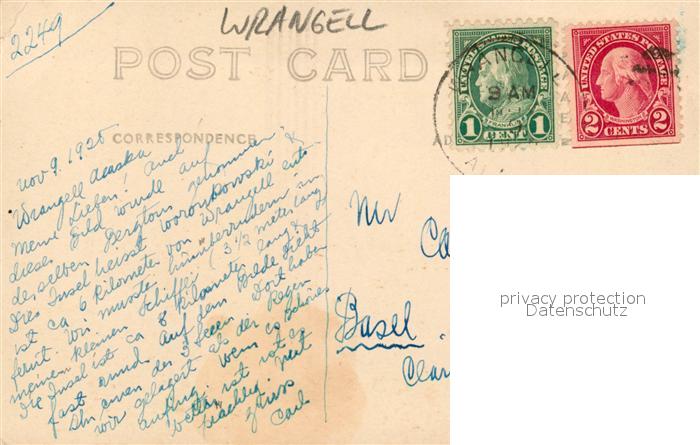 2249
WRANGELL
POST CARD
UNITED STATES POSTAGE
FRANKLIN
1 CENT 1
UNITED STATES POSTAGE
WASHINGTON
2 CENTS 2
WRANGELL
9 AM
CORRESPONDENCE
Nov 9. 1925
Wrangell Alaska
Meine Lieben! Auch
dieses Bild wurde auf
derselben Bergtour genommen.
Dies Insel heisst Woronkowski &
ist ca 6 kilometer von Wrangell ent-
fernt. Wir mussten hinüberrudern in
meinem kleinen Schiffli (3 1/2 meter lang
Die Insel ist ca 8 kilometer lang &
fast rund. Auf dem Bilde sieht
Ihr einen der 3 Seen. Dort haben
wir gelagert als der Regen
anfing. Wenn es
besser ist ist es
prachtig. Gut
Gruss
Carl
Mr
Ca
Basel
Clar
privacy protection
Datenschutz